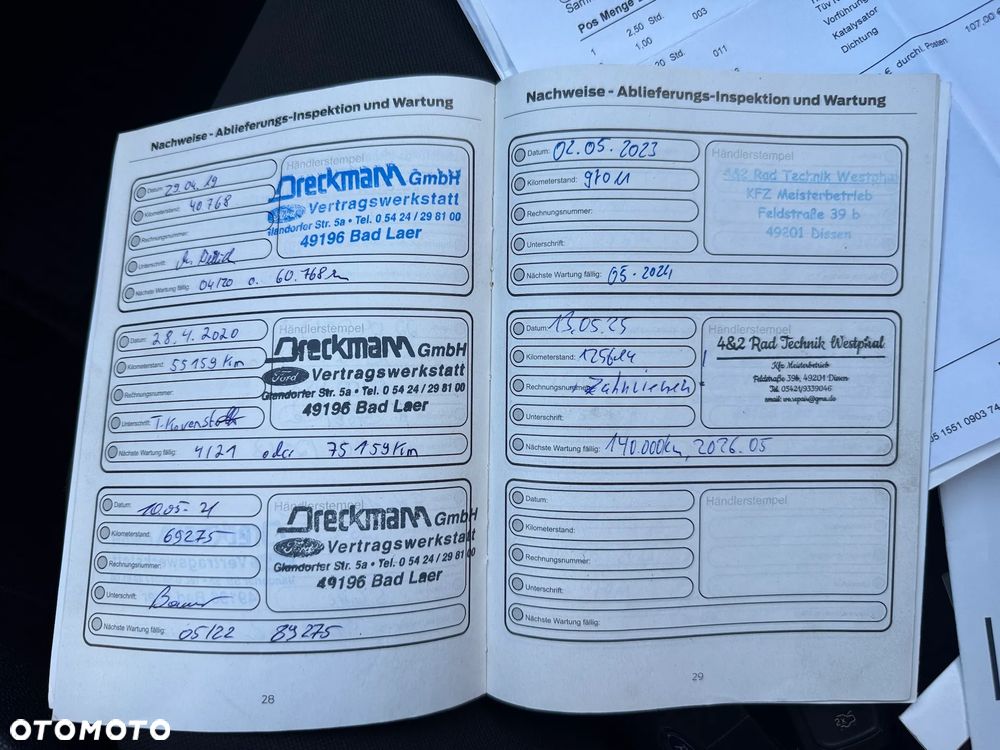 Pos Menge
1 2.50 Std. 003
1.00
Std. 011
Vorführung
Katalysator
Dichtung
107.00 €
durchl. Posten:
Nachweise - Ablieferungs-Inspektion und Wartung
Datum: 29.04.19
Kilometerstand: 40.768
Rechnungsnummer:
Unterschrift:
Nächste Wartung fällig: 04/20 o. 60.768 km
Händlerstempel
Dreckmann GmbH
Ford Vertragswerkstatt
Glandorfer Str. 5a • Tel. 0 54 24 / 29 81 00
49196 Bad Laer
Datum: 28.4.2020
Kilometerstand: 55159 Km
Rechnungsnummer:
Unterschrift:
Nächste Wartung fällig: 4/21 oder 75159 Km
Händlerstempel
Dreckmann GmbH
Ford Vertragswerkstatt
Glandorfer Str. 5a • Tel. 0 54 24 / 29 81 00
49196 Bad Laer
Datum: 10.05-21
Kilometerstand: 69275
Rechnungsnummer:
Unterschrift:
Nächste Wartung fällig: 05/22 89275
Händlerstempel
Dreckmann GmbH
Ford Vertragswerkstatt
Glandorfer Str. 5a • Tel. 0 54 24 / 29 81 00
49196 Bad Laer
28
Nachweise - Ablieferungs-Inspektion und Wartung
Datum: 02.05.2023
Kilometerstand: 97011
Rechnungsnummer:
Unterschrift:
Nächste Wartung fällig: 05-2024
Händlerstempel
4&2 Rad Technik Westphal
KFZ Meisterbetrieb
Feldstraße 39 b
49201 Dissen
Datum: 13.05.25
Kilometerstand:
Rechnungsnummer: Zahnriemen
Unterschrift:
Nächste Wartung fällig: 140.000km, 2026.05
Händlerstempel
4&2 Rad Technik Westphal
Kfz Meisterbetrieb
Feldstraße 39b, 49201 Dissen
Tel. 05421/9339046
Datum:
Kilometerstand:
Rechnungsnummer:
Unterschrift:
Nächste Wartung fällig:
Händlerstempel
29
1551 0903 74
OTOMOTO